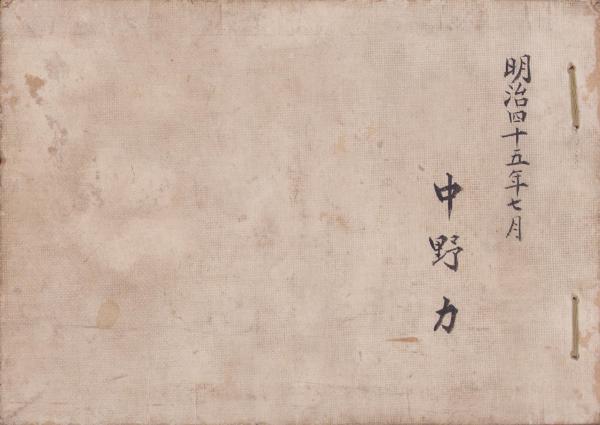 明治四十五年七月
中野力